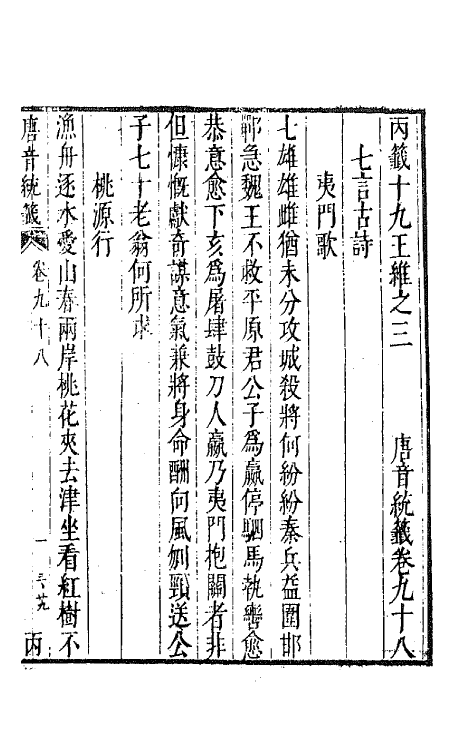 丙籤十九王維之三　唐音統籤卷九十八
七言古詩
夷門歌
七雄雄雌猶未分攻城殺將何紛紛秦兵益圍邯
鄲急魏王不救平原君公子爲嬴停駟馬執轡愈
恭意愈下亥爲屠肆鼓刀人嬴乃夷門抱關者非
但慷慨獻奇謀意氣兼將身命酬向風刎頸送公
子七十老翁何所求
桃源行
漁舟逐水愛山春兩岸桃花夾去津坐看紅樹不
唐音統籤　卷九十八　一　丙